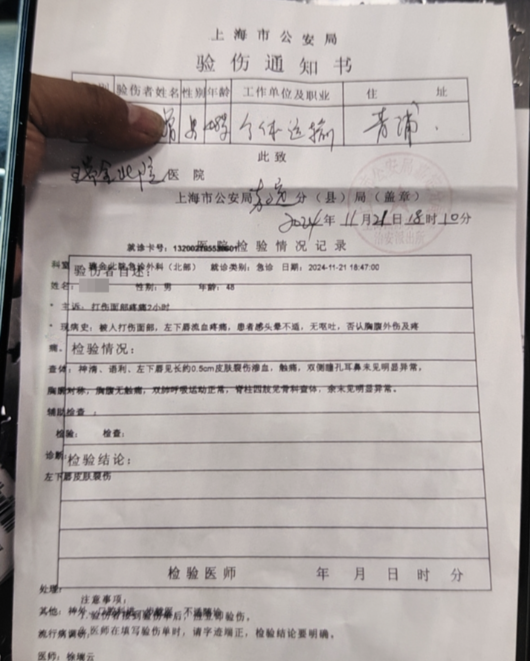 上海市公安局
验伤通知书
验伤者姓名 性别 年龄 工作单位及职业 住 址
男 个体运输 青浦
此致
瑞金北院 医院
上海市公安局 分(县)局(盖章)
2024年11月21日18时10分
就诊卡号:
医院检验情况记录
急诊外科(北部) 就诊类别:急诊 日期:2024-11-21 18:47:00
验伤者自述:
姓名: 性别:男 年龄:48
主诉:打伤面部疼痛2小时
现病史:被人打伤面部,左下唇流血疼痛,患者感头晕不适,无呕吐,否认胸腹外伤及疼
痛。
检验情况:
查体:神清、语利、左下唇见长约0.5cm皮肤裂伤渗血,触痛,双侧瞳孔耳鼻未见明显异常,
胸廓对称,胸腹无触痛,双肺呼吸运动正常,脊柱四肢见骨科查体,余未见明显异常。
辅助检查:
检验: 检查:
诊断:
检验结论:
左下唇皮肤裂伤
检验医师 年 月 日 时 分
处理:
注意事项:
其他:神外、口腔科
流行病
医师在填写验伤单时,请字迹端正,检验结论要明确。
医师:徐瑞云